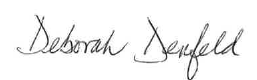 Deborah Denfeld